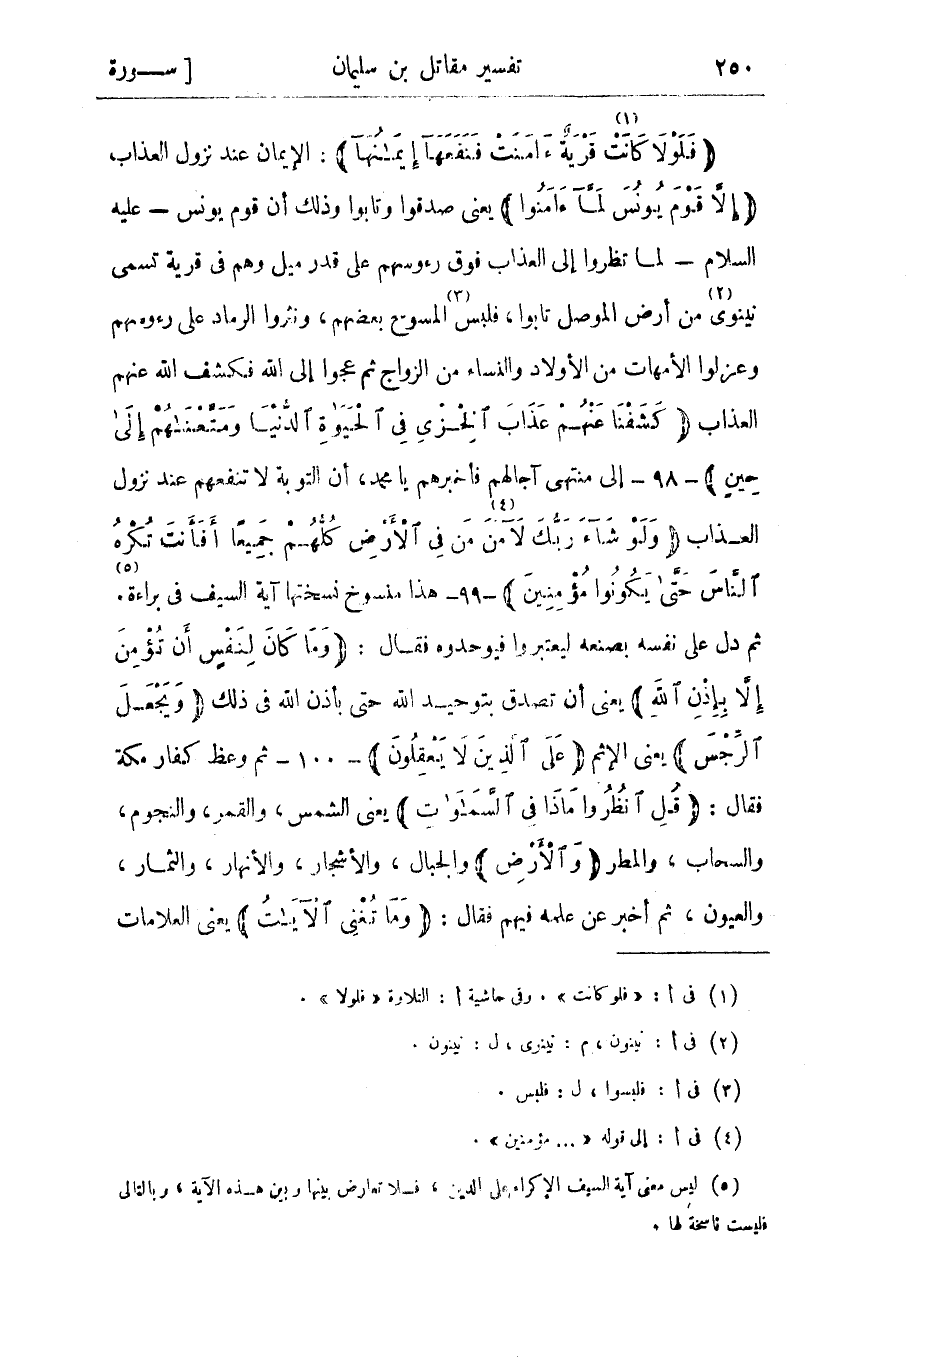 ٢٥٠ تفسير مقاتل بن سليمان [ ســـورة
(١)
﴿ فَلَوْلَا كَانَتْ قَرْيَةٌ ءَامَنَتْ فَنَفَعَهَآ إِيمَـٰنُهَآ ﴾ : الإيمان عند نزول العذاب
﴿ إِلَّا قَوْمَ يُونُسَ لَمَّآ ءَامَنُوا ﴾ يعنى صدقوا وتابوا وذلك أن قوم يونس – عليه
السلام – لمــا نظروا إلى العذاب فوق رءوسهم على قدر ميل وهم فى قرية تسمى
(٢) (٣)
نينوى من أرض الموصل تابوا ، فلبس المسوح بعضهم ، ونثروا الرماد على رءوسهم
وعزلوا الأمهات من الأولاد والنساء من الزواج ثم عجوا إلى الله فكشف الله عنهم
العذاب ﴿ كَشَفْنَا عَنْهُــمْ عَذَابَ ٱلْخِــزْىِ فِى ٱلْحَيَوٰةِ ٱلدُّنْيَــا وَمَتَّعْنَـٰهُمْ إِلَىٰ
حِينٍ ﴾ – ٩٨ – إلى منتهى آجالهم فأخبرهم يا محمد ، أن التوبة لا تنفعهم عند نزول
(٤)
العــذاب ﴿ وَلَوْ شَآءَ رَبُّكَ لَآمَنَ مَن فِى ٱلْأَرْضِ كُلُّهُــمْ جَمِيعًا أَفَأَنتَ تُكْرِهُ
(٥)
ٱلنَّاسَ حَتَّىٰ يَكُونُوا مُؤْمِنِينَ ﴾ – ٩٩ – هذا منسوخ نسختها آية السيف فى براءة .
ثم دل على نفسه بصنعه ليعتبروا فيوحدوه فقــال : ﴿ وَمَا كَانَ لِنَفْسٍ أَن تُؤْمِنَ
إِلَّا بِإِذْنِ ٱللَّهِ ﴾ يعنى أن تصدق بتوحيــد الله حتى يأذن الله فى ذلك ﴿ وَيَجْعَــلُ
ٱلرِّجْسَ ﴾ يعنى الإثم ﴿ عَلَى ٱلَّذِينَ لَا يَعْقِلُونَ ﴾ – ١٠٠ – ثم وعظ كفار مكة
فقال : ﴿ قُلِ ٱنظُرُوا مَاذَا فِى ٱلسَّمَـٰوَٰتِ ﴾ يعنى الشمس ، والقمر ، والنجوم ،
والسحاب ، والمطر ﴿ وَٱلْأَرْضِ ﴾ والجبال ، والأشجار ، والأنهار ، والثمــار ،
والعيون ، ثم أخبر عن علمه فيهم فقال : ﴿ وَمَا تُغْنِى ٱلْآيَـٰتُ ﴾ يعنى العلامات
(١) فى أ : « فلو كانت » . وفى حاشية أ : التلاوة « فلولا » .
(٢) فى أ : نينون ، م : نينوى ، ل : نينون .
(٣) فى أ : فلبسوا ، ل : فلبس .
(٤) فى أ : إلى قوله « ... مؤمنين » .
(٥) ليس معنى آية السيف الإكراه على الدين ، فــلا تعارض بينها وبين هــذه الآية ، وبالتالى
فليست ناسخة لها .